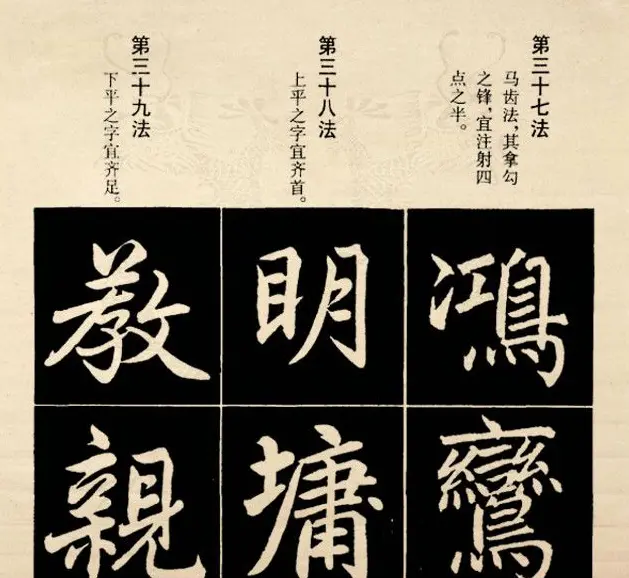 第三十七法
马齿法，其拿勾
之锋，宜注射四
点之半。
第三十八法
上平之字宜齐首。
第三十九法
下平之字宜齐足。
鴻
鸞
明
墉
教
親